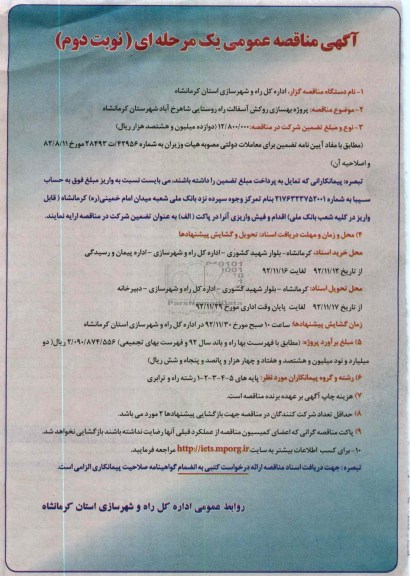 آگهی مناقصه عمومی یک مرحله ای ( نوبت دوم)
۱- نام دستگاه مناقصه گزار: اداره کل راه و شهرسازی استان کرمانشاه
۲- موضوع مناقصه: پروژه بهسازی روکش آسفالت راه روستایی شاهرخ آباد شهرستان کرمانشاه
۳- نوع و مبلغ تضمین شرکت در مناقصه: ۱۲/۸۰۰/۰۰۰ (دوازده میلیون و هشتصد هزار ریال)
(مطابق با مفاد آیین نامه تضمین برای معاملات دولتی مصوبه هیات وزیران به شماره ۴۲۹۵۶/ت ۲۸۴۹۳ مورخ ۸۲/۸/۱۱
و اصلاحیه آن)
تبصره: پیمانکارانی که تمایل به پرداخت مبلغ تضمین را داشته باشند، می بایست نسبت به واریز مبلغ فوق به حساب
سیبا به شماره ۲۱۷۶۳۳۳۷۵۲۰۰۱ بنام تمرکز وجوه سپرده نزد بانک ملی شعبه میدان امام خمینی(ره) کرمانشاه ( قابل
واریز در کلیه شعب بانک ملی) اقدام و فیش واریزی آنرا در پاکت ( الف) به عنوان تضمین شرکت در مناقصه ارایه نمایند.
۴) محل و زمان و مهلت دریافت اسناد، تحویل و گشایش پیشنهادها
محل خرید اسناد: کرمانشاه- بلوار شهید کشوری - اداره کل راه و شهرسازی - اداره پیمان و رسیدگی
از تاریخ ۹۲/۱۱/۱۲ لغایت ۹۲/۱۱/۱۶
محل تحویل اسناد: کرمانشاه - بلوار شهید کشوری - اداره کل راه و شهرسازی - دبیرخانه
از تاریخ ۹۲/۱۱/۱۷ لغایت پایان وقت اداری مورخ ۹۲/۱۱/۲۹
زمان گشایش پیشنهادها: ساعت ۱۰ صبح مورخ ۹۲/۱۱/۳۰ در اداره کل راه و شهرسازی استان کرمانشاه
۵) مبلغ برآورد پروژه: (مطابق با فهرست بها راه و باند سال ۹۲ و فهرست بهای تجمیعی) ۲/۰۹۰/۸۷۴/۵۵۶ ریال( دو
میلیارد و نود میلیون و هشتصد و هفتاد و چهار هزار و پانصد و پنجاه و شش ریال)
۶) رشته و گروه پیمانکاران مورد نظر: پایه های ۵-۴-۳-۲-۱ رشته راه و ترابری
۷) هزینه چاپ آگهی بر عهده برنده مناقصه است.
۸) حداقل تعداد شرکت کنندگان در مناقصه جهت بازگشایی پیشنهادها ۲ مورد می باشد.
۹) پاکت مناقصه گرانی که اعضای کمیسیون مناقصه از عملکرد قبلی آنها رضایت نداشته باشند بازگشایی نخواهد شد.
۱۰- برای کسب اطلاعات بیشتر به سایت http://iets.mporg.ir مراجعه فرمایید.
تبصره : جهت دریافت اسناد مناقصه ارائه درخواست کتبی به انضمام گواهینامه صلاحیت پیمانکاری الزامی است.
روابط عمومی اداره کل راه و شهرسازی استان کرمانشاه